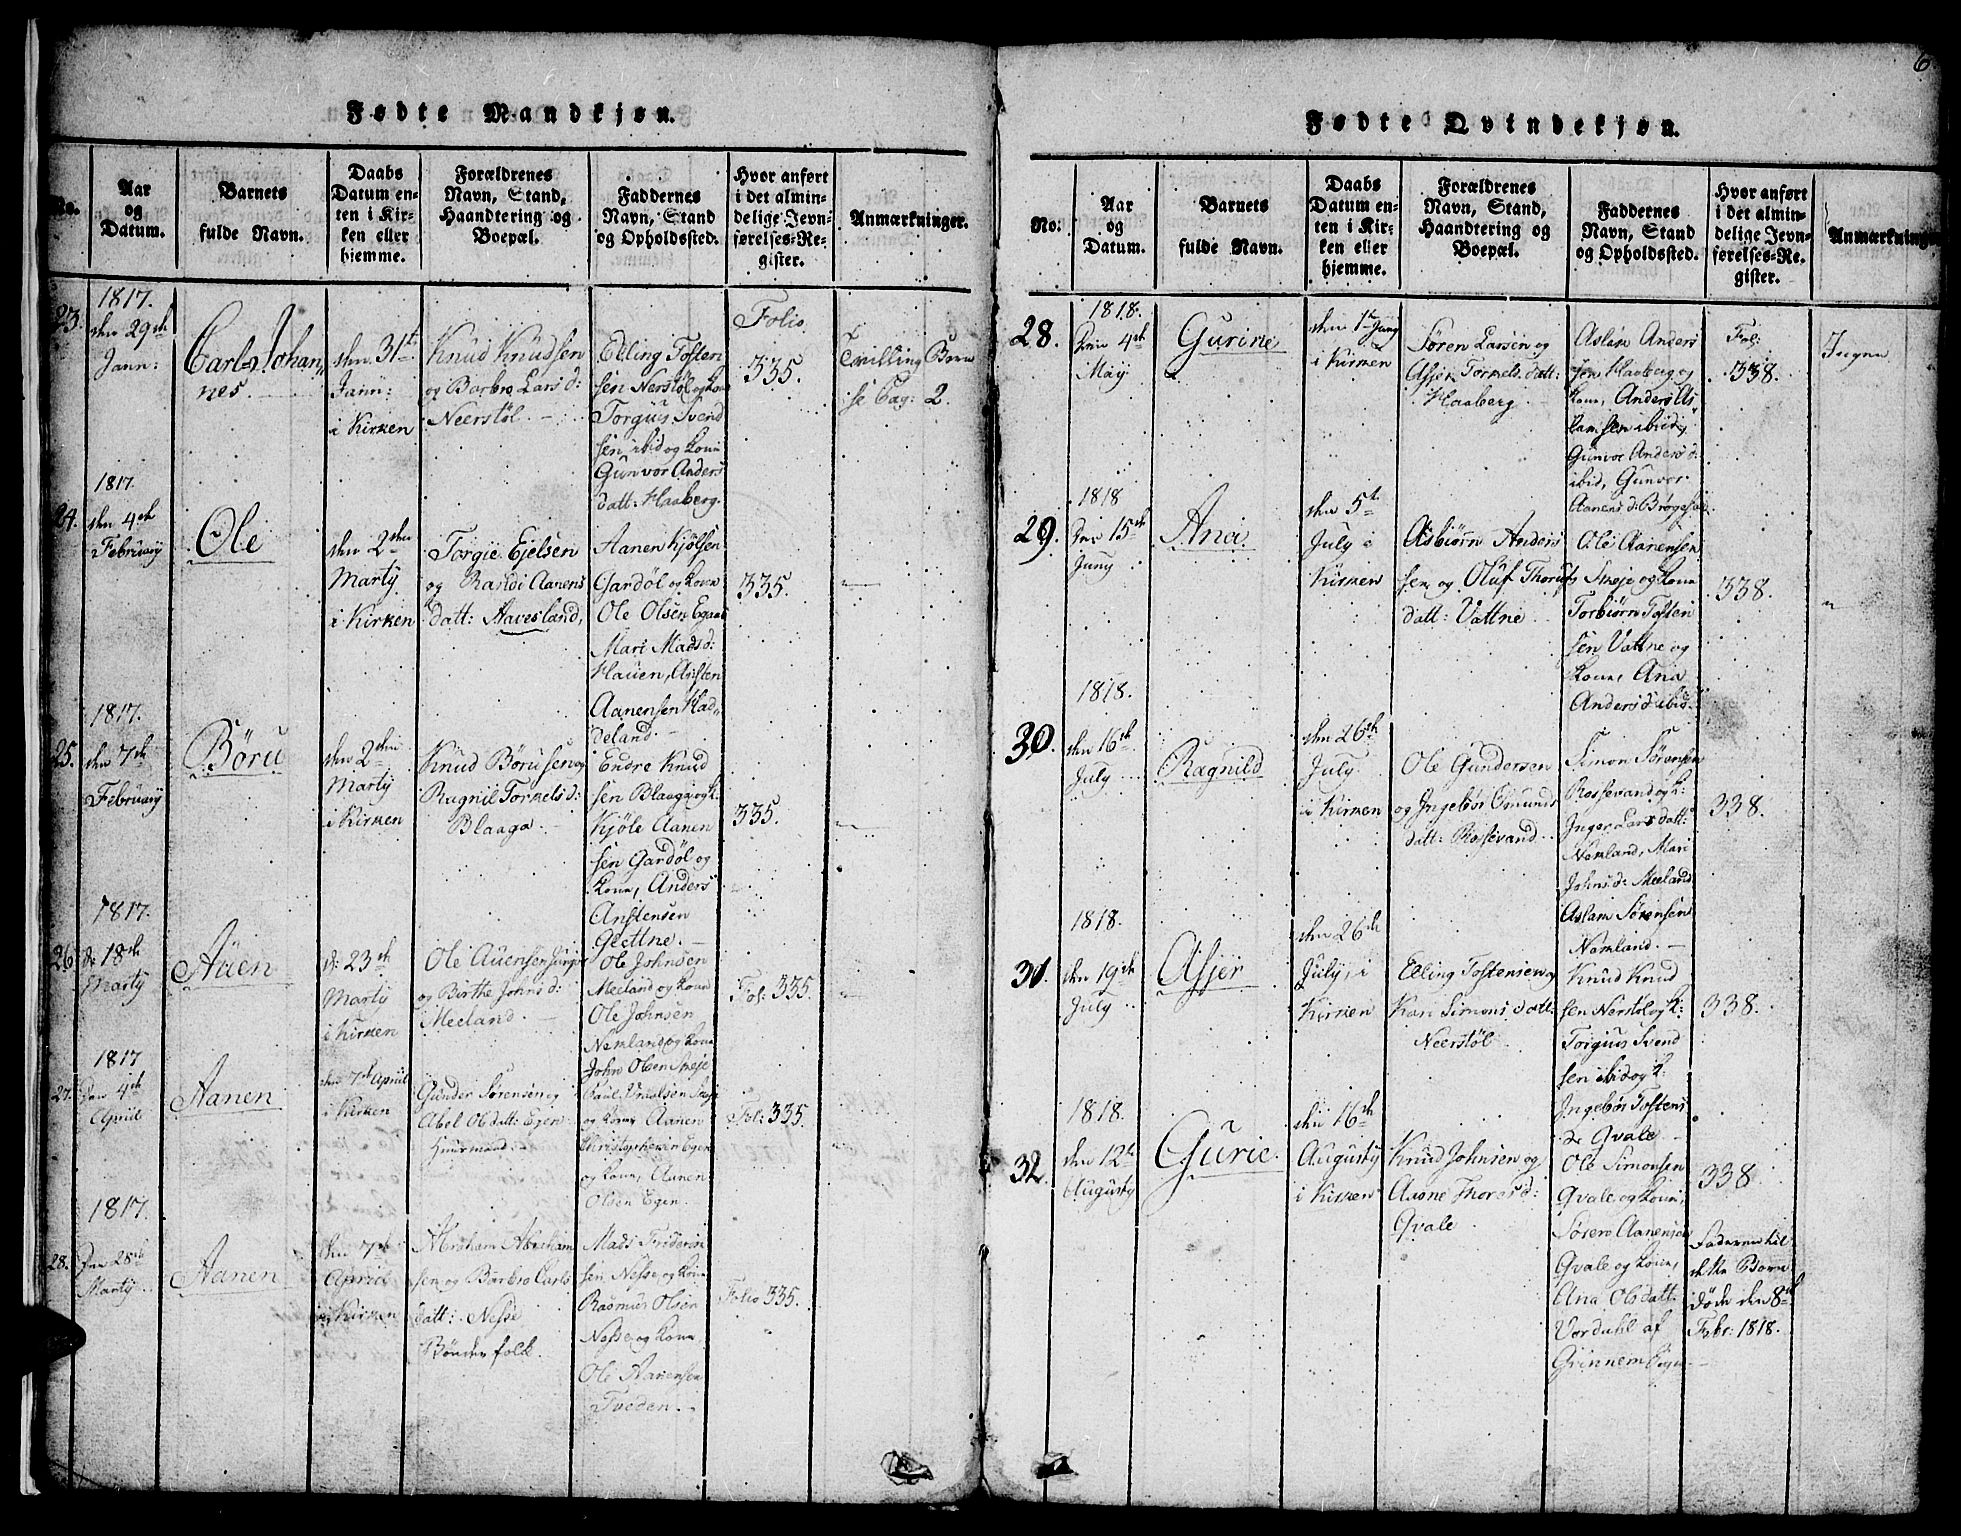 6
Fødte Mandkjøn.
No.
Aar
og
Datum.
Barnets
fulde Navn.
Daabs
Datum en-
ten i Kir-
ken eller
hjemme.
Forældrenes
Navn, Stand,
Haandtering og
Boepæl.
Faddernes
Navn, Stand
og Opholdssted.
Hvor anført
i det almin-
delige Jevn-
førelses-Re-
gister.
Anmærkninger.
23.
1817.
den 29de
Jann:
Carl Johan
nes.
den 31te
Jann:
i Kirken
Knud Knudsen
og Barbro Lars d:
Neerstøl
Elling Tosten
sen Nerstøl og Kone
Torgius Svend
sen, ibid og kone
Gunvor Anders
datt: Haaberg.
Folio,
335.
Tvilling Børn
se Pag: 2.
24.
1817.
den 4de
February
Ole
den 2den
Marty
i Kirken
Torgie Ejelsen
og Randi Aanens
datt: Aavesland,
Aanen Kjølsen
Gardøl og kone
Ole Olsen Egeaas
Mari Mads d:
Hauen, Austen
Aanensen Had,,
deland.
335.
25.
1817.
den 7de
February
Børu
den 2den
Marty
i Kirken
Knud Børusen og
Ragnil Tormels d:
Blaaga.
Endre Knud
sen Blaaga og k:
Kjøle Aanen
sen Gardøl og
kone, Anders
Anstensen
Glettne.
335.
26.
1817.
d: 18de
Marty
Auen
d: 23de
Marty
i Kirken
Ole Auensen Junior
og Birthe Johns d:
Meeland.
Ole Johnsen
Meeland og kone
Ole Johnsen
Nomland og kone
John Olsen Skeje
Fol: 335.
27.
1817
den 4de
Aprill
Aanen
den 7de Aprill
i Kirken
Gunder Sørensen og
Abel Ols datt: Egen
Huusmænd:
og kone Aanen
Christophersen Egen
og kone, Aanen
Olsen Egen.
Fol: 335.
28.
1817.
den 28de
Marty
Aanen
den 7de
Aprill
i Kirken
Abraham Abraham
sen og Barbro Carls
datt: Nesse
Bønder folk.
Mads Frideric
sen Nesse, og kone
Rasmus Olsen
Nesse, og kone,
Ole Aanensen
Tveden.
Folio 335.
Fødte Qvindekjøn.
No:
Aar
og
Datum.
Barnets
fulde Navn.
Daabs
Datum en-
ten i Kir-
ken eller
hjemme.
Forældrenes
Navn, Stand,
Haandtering og
Boepæl.
Faddernes
Navn, Stand
og Opholdssted.
Hvor anført
i det almin-
delige Jevn-
førelses-Re-
gister.
Anmærkninger
28.
1818.
den 4de
May
Gurine
den 1te Juny
i Kirken
Søren Larsen og
Asjer Tormels datt:
Haaberg.
Aslam Anders
sen Haaberg og
kone, Anders As,,
lamsen ibid,
Gunvor Anders d:
ibid, Gunvor
Aanens d: Brøgesvold
Fol:
338.
Ingen
29.
1818
den 15de
Juny
Ana
den 5te
July i
Kirken
Asbiørn Anders
sen og Oluf Thorufs
datt: Vattne
Ole Aanensen
Skeje og kone
Torbiørn Tosten
sen Vattne og
kone, Ana
Anders d: ibid.
338.
30.
1818.
den 16de
July
Ragnild
den 26de
July
i Kirken
Ole Gundersen
og Ingebør Osmunds
datt: Røssevand
Simon Sørensen
Røssevand og k:
Inger Lars datt:
Nomland, Mari
Johns d: Meeland
Aslam Sørensen
Nomland.
338.
31.
1818.
den 19de
July
Asjer
den 26de
July, i
Kirken
Elling Tostensen og
Kari Simons datt:
Neerstøl
Knud Knud
sen Nerstøl og k:
Torgius Svend
sen ibid og k:
Ingebør Tostens
d: Qvale
338.
32.
1818.
den 12te
Augusty
Gurie.
den 16de
Augusty
i Kirken
Knud Johnsen og
Aasne Thores d:
Qvale
Ole Simonsen
Qvale og kone,
Søren Aanensen
Qvale og kone,
Ana Ols datt:
Vordahl af
Grinnem Sogn
338
Faderen til
dette Barn
døde den 8de
Febr: 1818.